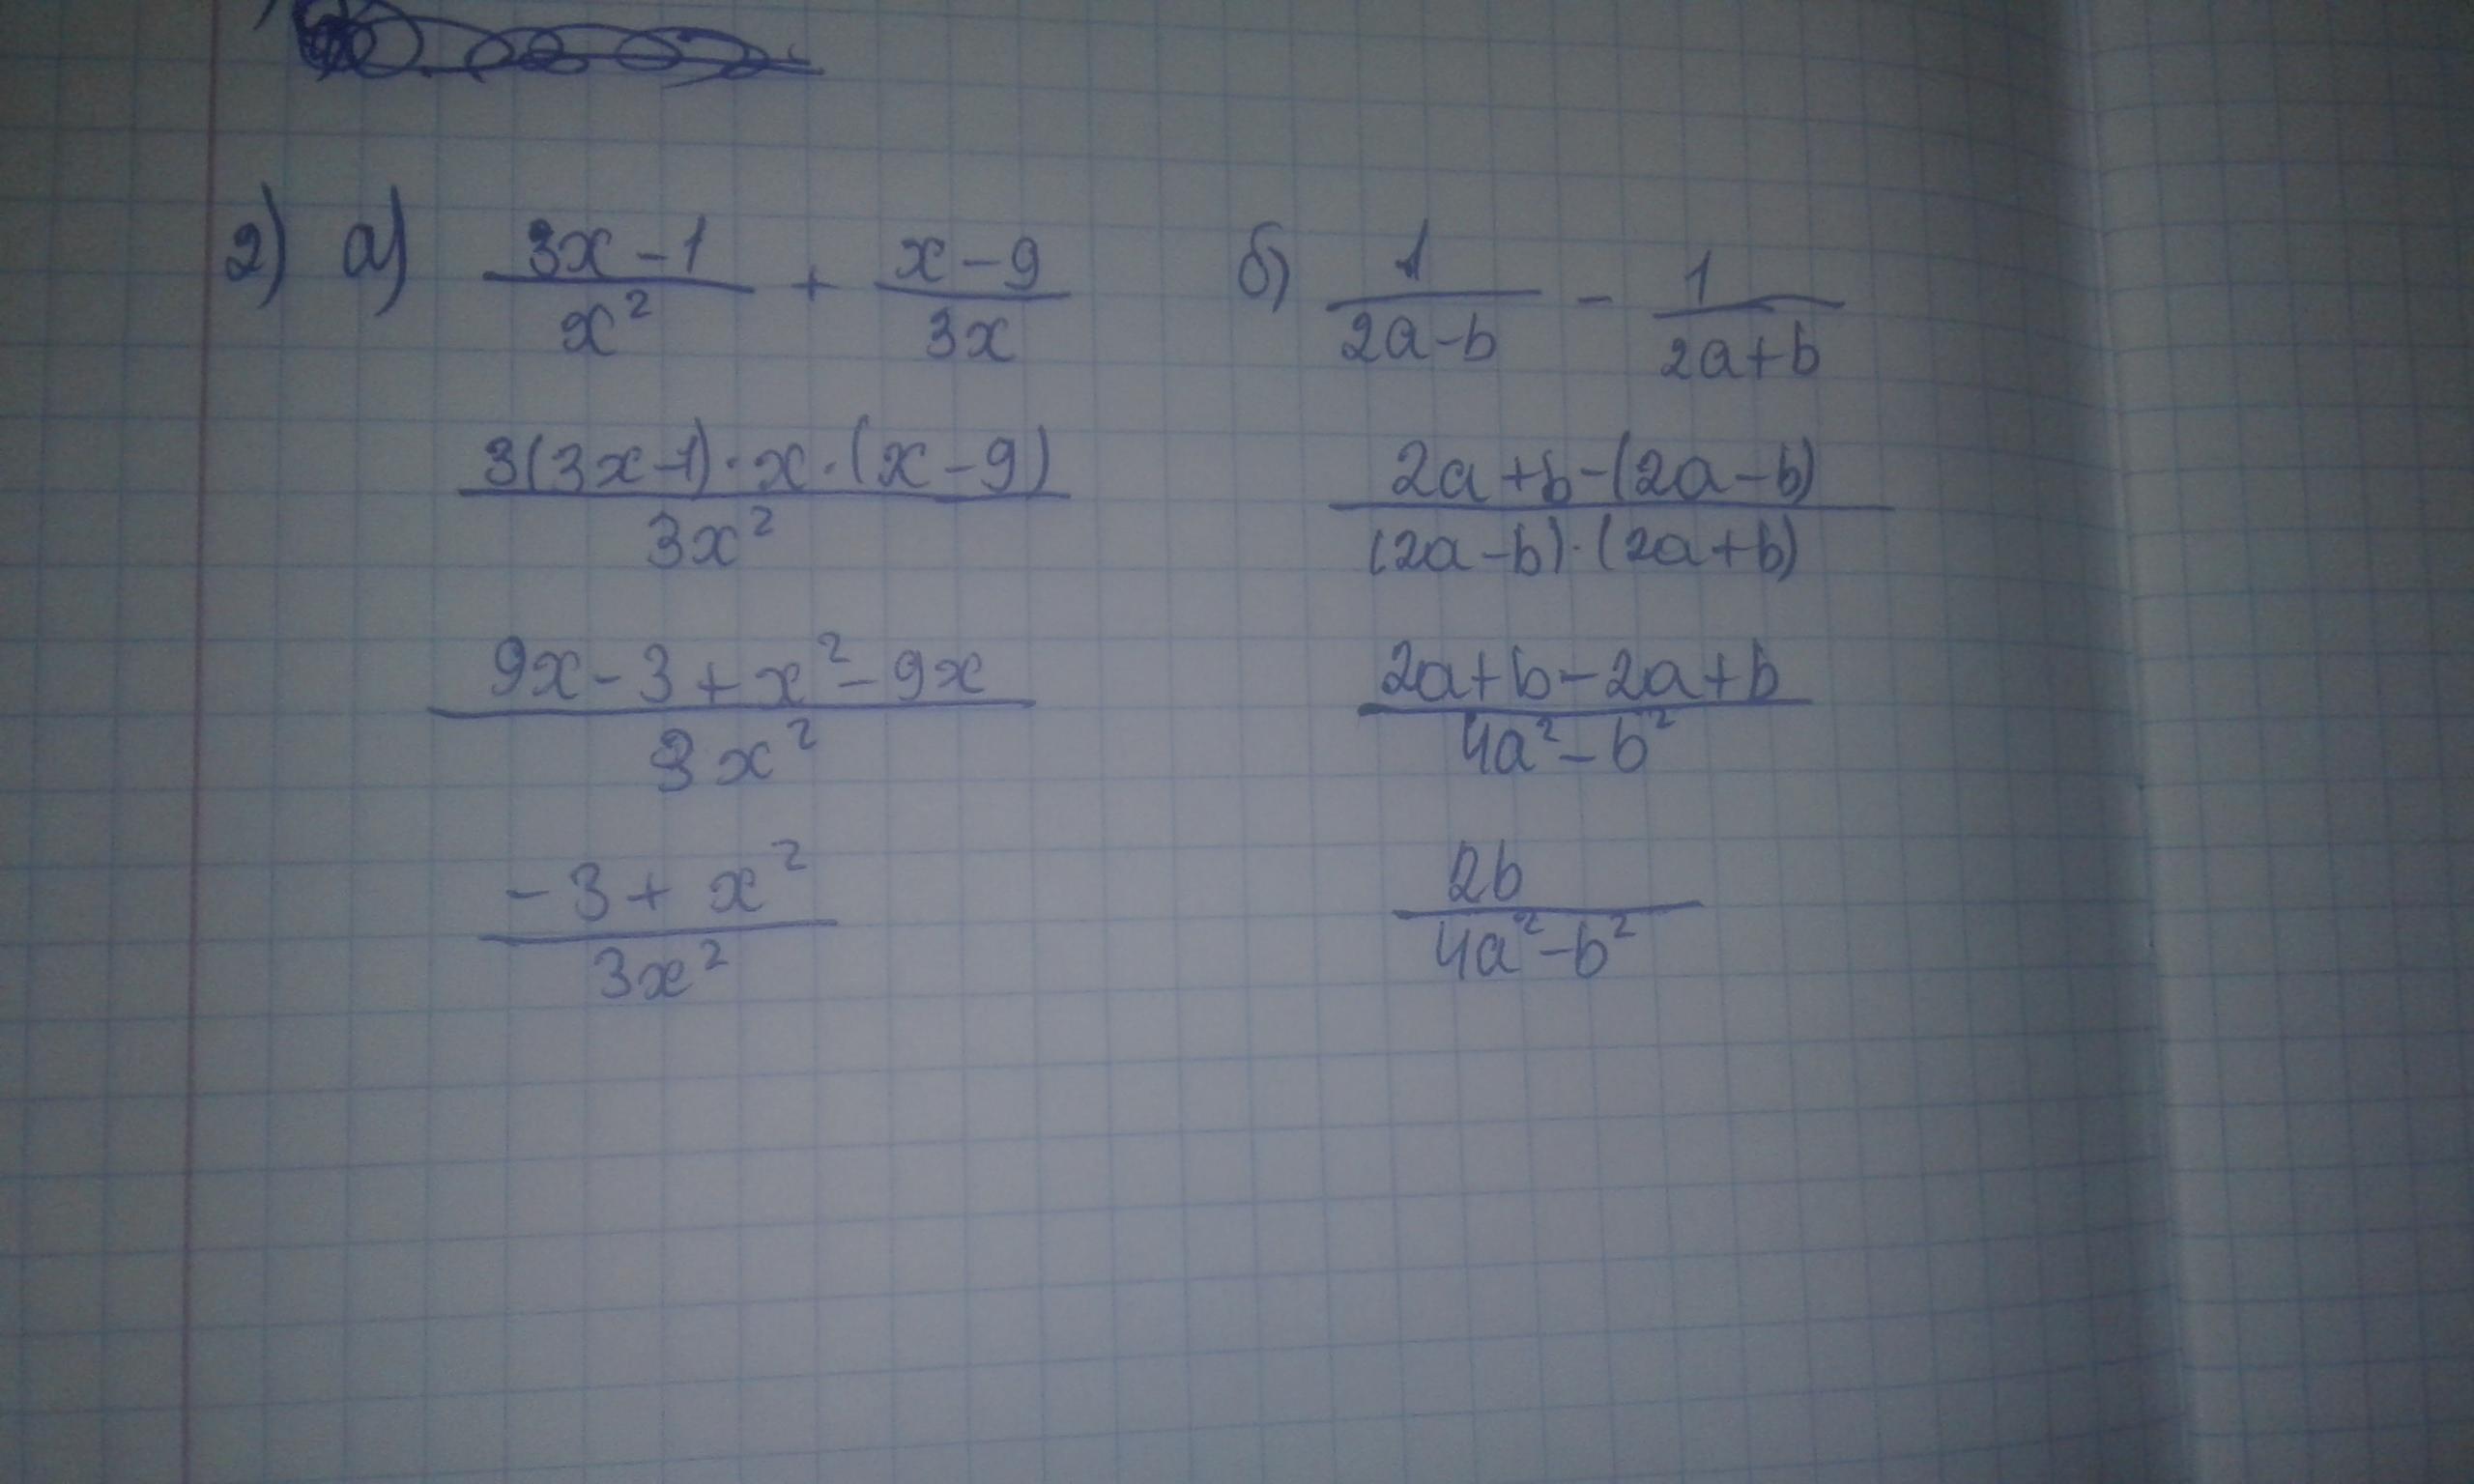 2) а) (3x-1)/x² + (x-9)/3x
(3(3x-1)·x·(x-9))/3x²
(9x-3+x²-9x)/3x²
(-3+x²)/3x²
б) 1/(2a-b) - 1/(2a+b)
(2a+b-(2a-b))/((2a-b)·(2a+b))
(2a+b-2a+b)/(4a²-b²)
2b/(4a²-b²)